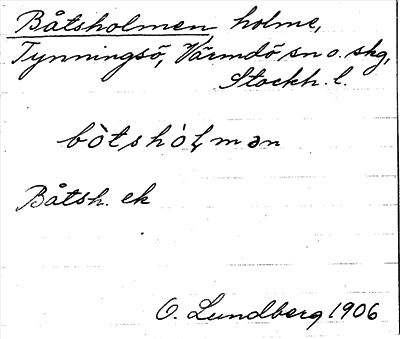 Båtsholmen, holme,
Tynningsö, Värmdö sn o. skg,
Stockh. l.
bòtshòl̥mən
Båtsh. ek
O. Lundberg 1906